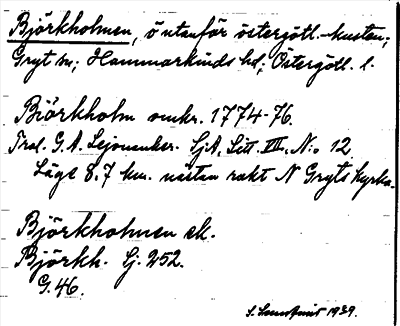 Björkholmen, ö utanför östergötl.-kusten;
Gryt sn; Hammarkinds hd; Östergötl. l.
Biörkholm omkr. 1774-76.
Trol. G. A. Lejonanker. SjA, Litt. III, N:o 12
Läge 8,7 km. nästan rakt N Gryts kyrka.
Björkholmen ek.
Björkh. Sj. 252.
G. 46.
S. 1939.